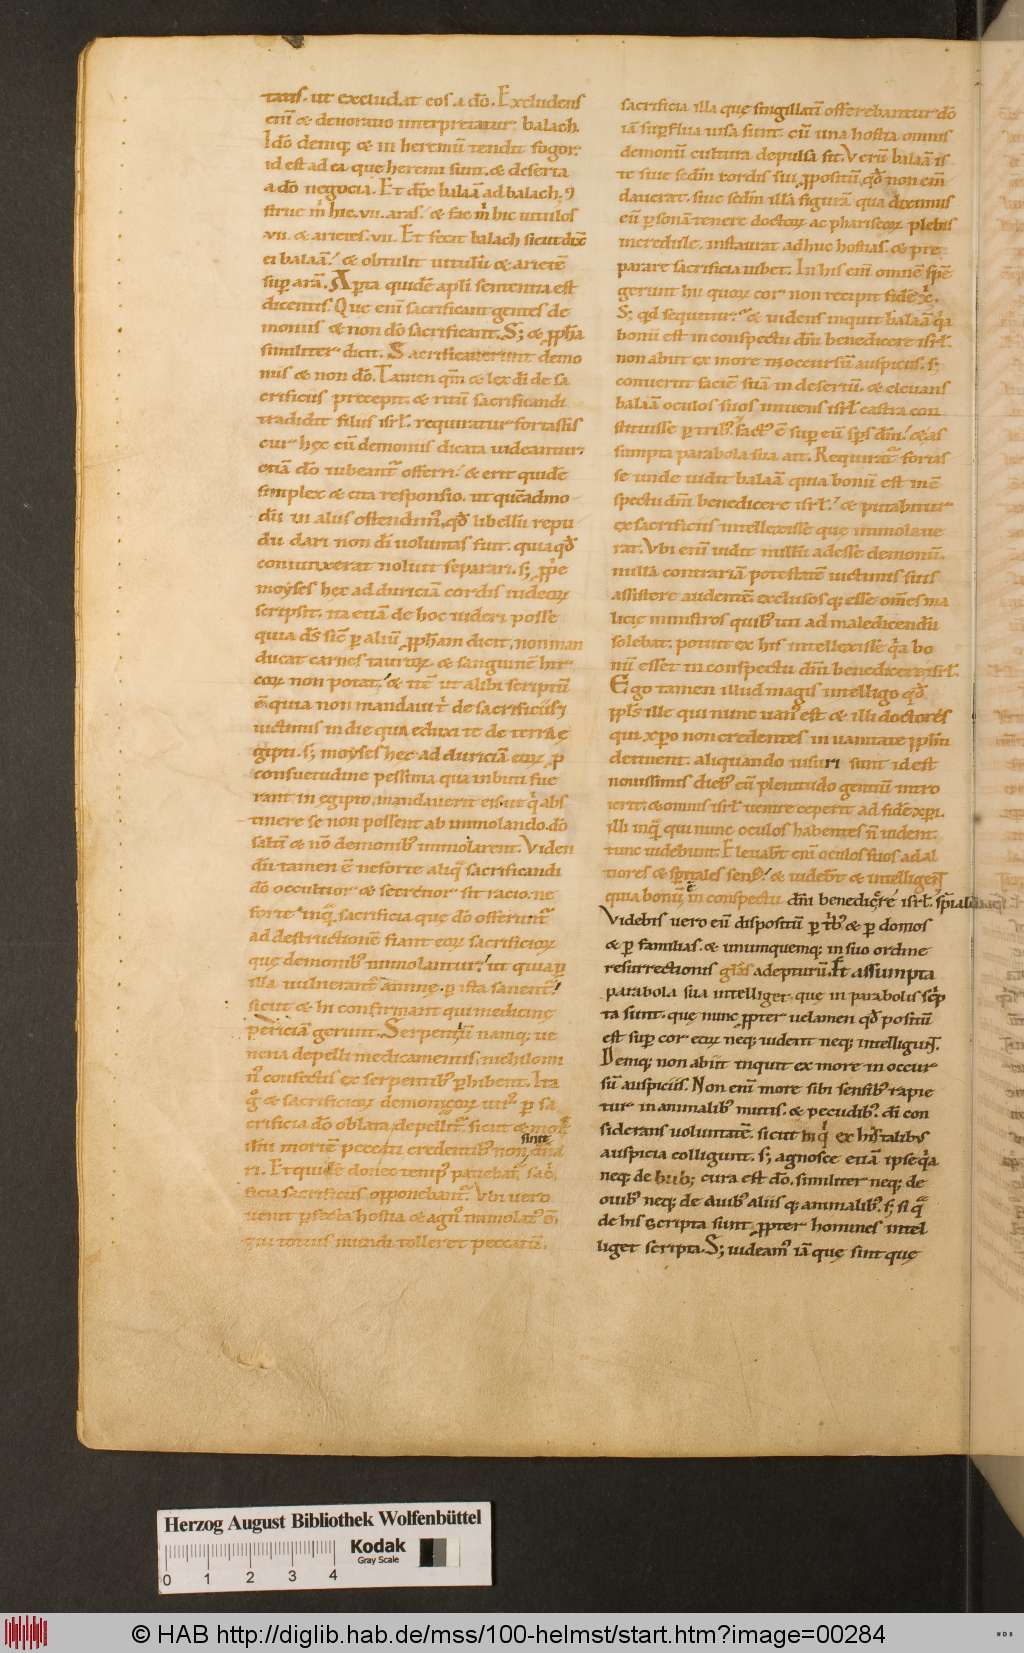 tatis. ut excludat eos a dō. Excludens
enī & devoratio interpretatur balach.
Idō demq; & in heremū tendit fogor.
id est ad ea que heremi sunt. & deserta
a dō negocia. Et dix̄ balaā ad balach. 9
strue m̄ hic .vii. aras. & fac m̄ hic vitulos
.vii. & arietes .vii. Et fecit balach sicut dix̄
ei balaā. & obtulit vitulū & arietē
sup arā. Aperta quidē apli sententia est
dicentis. Que enī sacrificant gentes de
moniis & non dō sacrificant. S; & ppha
similiter dicit. Sacrificaverunt demo
niis & non dō. Tamen qm̄ & lex di de sa
crificiis precepit. & ritū sacrificandi
tradidit filiis isrl. requiratur fortassis
cur hęc cū demoniis dicata videantur.
etiā dō iubeant offerri. & erit quidē
simplex & cita responsio. ut quēadmo
dū in aliis ostendim⁹, qđ libellū repu
dii dari non di voluntas fuit. quia qđ
coniunxerat noluit separari. s; ppe
moyses hęc ad duriciā cordis iudeoꝝ
scripsit. ita etiā de hoc videri posse
quia ds sic p aliū ppham dicit, non man
ducat carnes tauroꝝ. & sanguinē hir
coꝝ non potat. & itē ut alibi scriptū
ē. quia non mandavi t̄ de sacrificiis &
victimis in die qua eduxi te de terra ę
gipti. s; moyses hęc ad duriciā eoꝝ p
consuetudine pessima qua inbuti fue
rant in egipto, mandaverit eis. ut q̄ abs
tinere se non possent ab immolando. dō
saltē & nō demonib⁹ immolarent. Viden
dū tamen ē ne forte aliq̄ sacrificandi
dō occultior & secretior sit racio. ne
forte inq̄ sacrificia quę dō offerunt̄
ad destructionē fiant eoꝝ sacrificioꝝ
quę demonib⁹ immolantur. ut quia p
illa vulnerant̄ animę. p ista sanent̄.
sicut & hi confirmant qui medicinę
periciā gerunt. Serpentiū namq; ve
nena depelli medicamentis, nichilomi
n⁹ confectis ex serpentib⁹ phibent. Ita
g̊ & sacrificioꝝ demonicoꝝ vir⁹ p sa
crificia dō oblata, depellit̄. sicut & mors
ihu mortē peccati credentib⁹ non sinit dn̄a
ri. Et quidē donec temp⁹ patiebat̄ sac
ficia sacrificiis opponebant̄. Ubi vero
venit pfecta hostia & agn⁹ immolat⁹ ē.
qui totius mundi tolleret peccatū.
sacrificia illa que singillatī offerebantur dō
iā supflua visa sunt. cū una hostia omnis
demonū cultura depulsa sit. Verū balaā is
te sive sedm̄ cordis sui ppositū, qđ non em̄
daverat. sive sedm̄ illā figurā qua diximus
eū psonā tenere doctoꝝ ac phariseoꝝ plebis
incredule. instaurat adhuc hostias. & pre
parare sacrificia iubet. In his em̄ omnē spē
gerunt hi quoꝝ cor non recipit fidē x̄.
S; qđ sequitur. & videns inquit balaā q̄a
bonū est in conspectu dn̄i benedicere isrl.
non abiit ex more in occursū auspiciis. s;
convertit faciē suā in desertū. & elevans
balaā oculos suos intuens isrl castra con
stituisse p trib⁹. fact⁹ ē sup eū sps dn̄i. & as
sumpta parabola sua ait. Requirat̄ fortas
se unde vidit balaā quia bonū est in cō
spectu dn̄i benedicere isrl. & putabitur
ex sacrificiis intellexisse que immolave
rat. Ubi enī vidit nullū adesse demonū.
nullā contrariā potestatē victimis suis
assistere audentē. exclusos q; esse om̄es ma
licię ministros quib⁹ uti ad maledicendū
solebat. potuit ex his intellexisse q̄a bo
nū esset in conspectu dn̄i benedicere isrl.
Ego tamen illud magis intelligo qđ
ppls ille qui nunc van⁹ est & illi doctores
qui xpo non credentes in vanitate pplm
detinent. aliquando visuri sunt id est
novissimis dieb⁹ cū plenitudo gentiū intro
ierit & omnis isrl venire ceperit ad fidē xpi.
illi inq̄ qui nunc oculos habentes n̄ vident
tunc videbunt. Elevabt enī oculos suos ad al
tiores & spitales sens⁹. & videbt & intelligent
quia bonū ē in conspectu dn̄i benedicere isrl. spitalē
Videbis vero eū dispositū p trib⁹ & p domos
& p familias. & unumquemq; in suo ordine
resurrectionis glās adepturū. Et assumpta
parabola sua intelliget quę in parabolis scrip
ta sunt. quę nunc ppter velamen qđ positū
est sup cor eoꝝ neq; vident neq; intelligunt.
Demq; non abiit inquit ex more in occur
sū auspiciis. Non enī more sibi sensib⁹ rapie
tur in animalib⁹ mutis. & pecudib⁹. di con
siderans voluntatē. sicut hi q̄ ex his talibus
auspicia colligunt. s; agnosce etiā ipse q̄a
neq; de bub; cura est dō. similiter neq; de
ovib⁹ neq; de avib⁹ aliis q; animalib⁹. s; si q̄
de his scripta sunt ppter homines intel
liget scripta. S; videam⁹ iā quę sint quę
Herzog August Bibliothek Wolfenbüttel
Kodak
Gray Scale
0 1 2 3 4
© HAB http://diglib.hab.de/mss/100-helmst/start.htm?image=00284